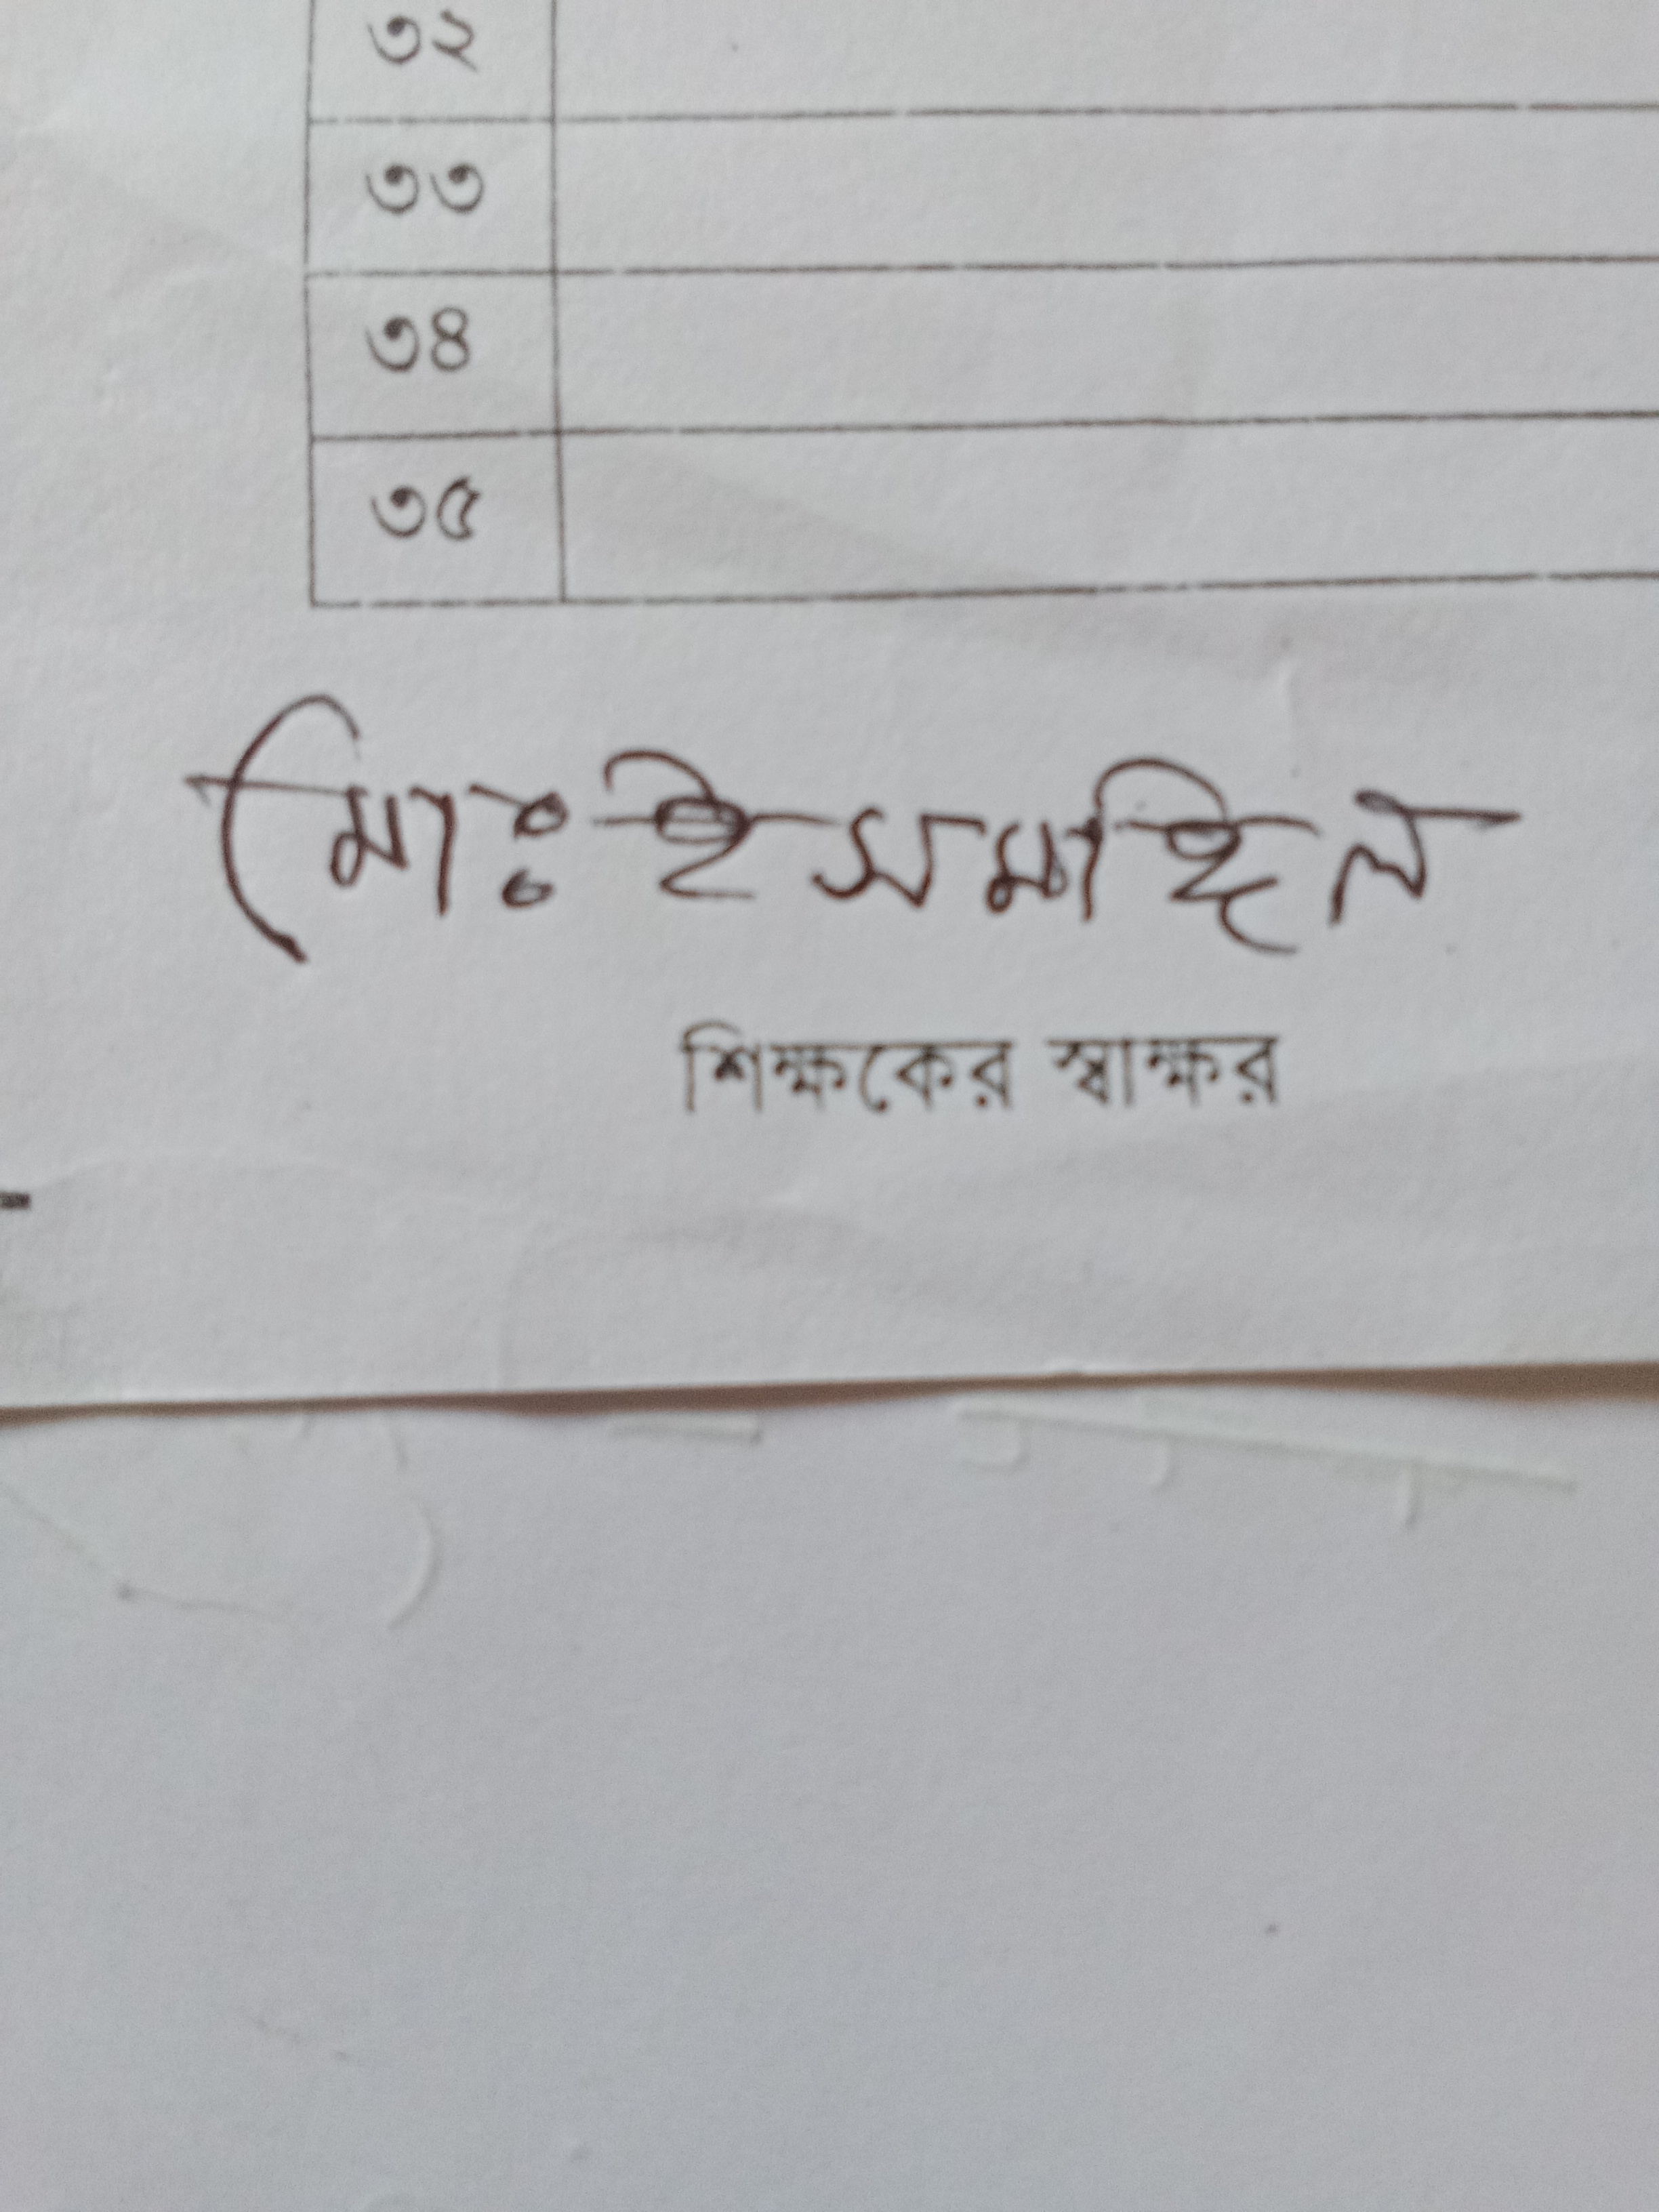 ৩২
৩৩
৩৪
৩৫
মোঃ ইসমাইল
শিক্ষকের স্বাক্ষর